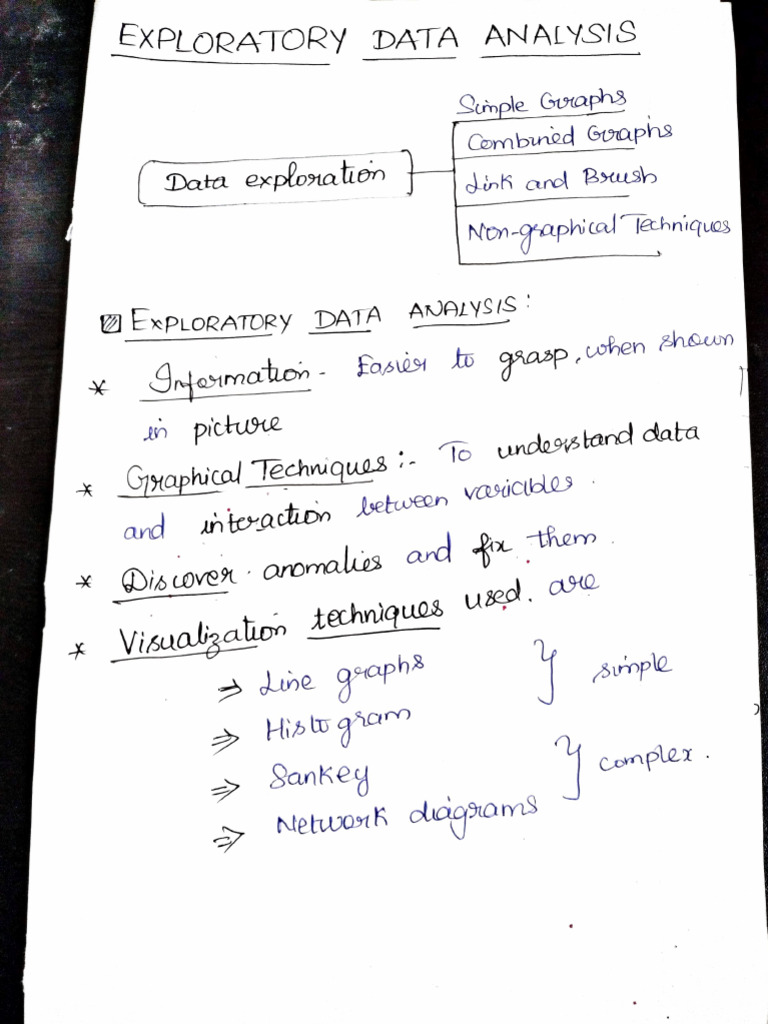 EXPLORATORY DATA ANALYSIS
Simple Graphs
Combined Graphs
Data exploration
Link and Brush
Non-graphical Techniques
EXPLORATORY DATA ANALYSIS:
* Information - Easier to grasp, when shown
in picture
* Graphical Techniques :- To understand data
and interaction between variables.
* Discover anomalies and fix them.
* Visualization techniques used are
⇒ Line graphs } simple
⇒ Histogram
⇒ Sankey } complex.
⇒ Network diagrams